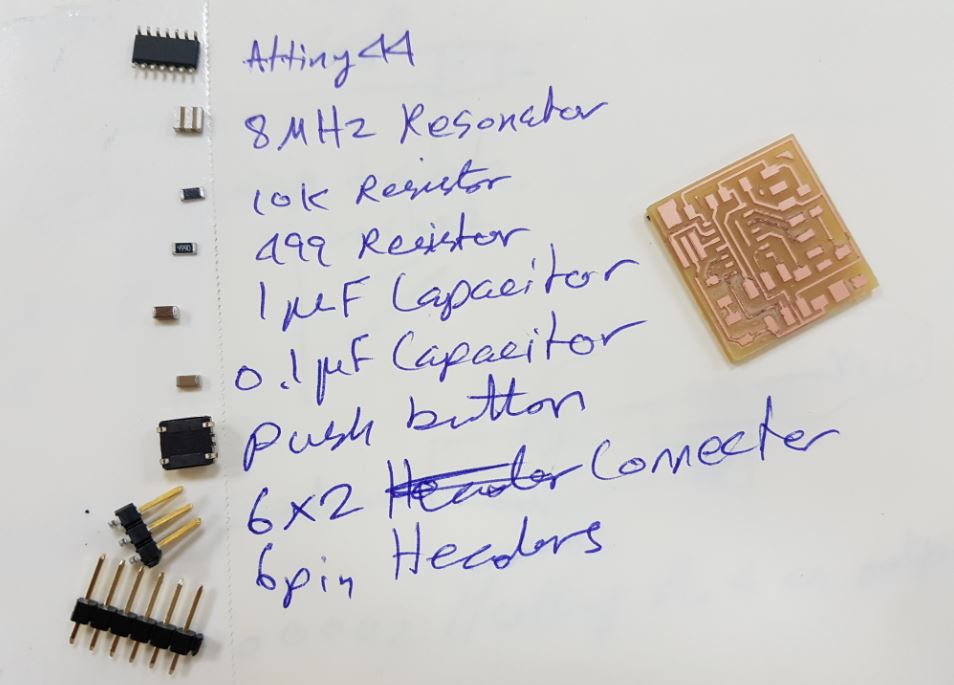 Attiny44
8MHz Resonator
10k Resistor
499 Resistor
1µF Capacitor
0.1µF Capacitor
push button
6x2 Header Connecter
6pin Headers